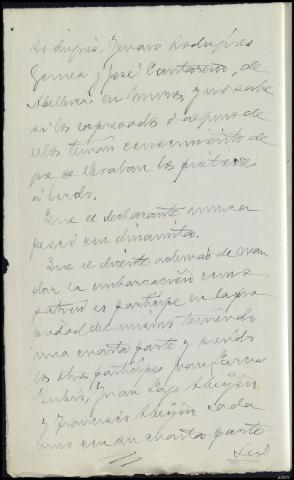 Rodriguez, Genaro Rodriguez
Gomea y José Cantareño, de
Abelleira en Muros, y no sabe
si los expresados ó alguno de
ellos tenian conocimiento de
que se llevaban los
á bordo.
Que el declarante nunca
pescó con dinamita.
Que el dicente además de man
dar la embarcación como
patrón es participe en la pro
piedad del mismo teniendo
una cuarta parte y siendo
los otros participes Juan Garcia
Juan Lago
y Francisco cada
uno con su cuarta parte